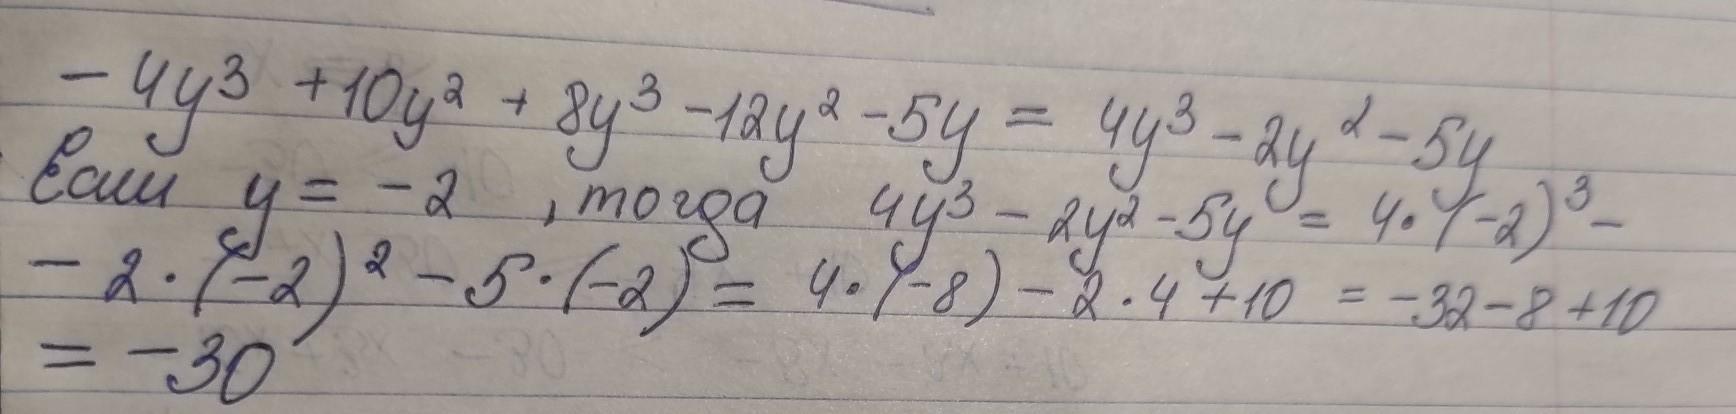 -4y³ +10y² + 8y³ -12y² -5y = 4y³ -2y² -5y
Если y = -2 , тогда 4y³ - 2y² -5y = 4·(-2)³ -
- 2·(-2)² - 5·(-2) = 4·(-8) - 2·4 +10 = -32 -8 +10
= -30